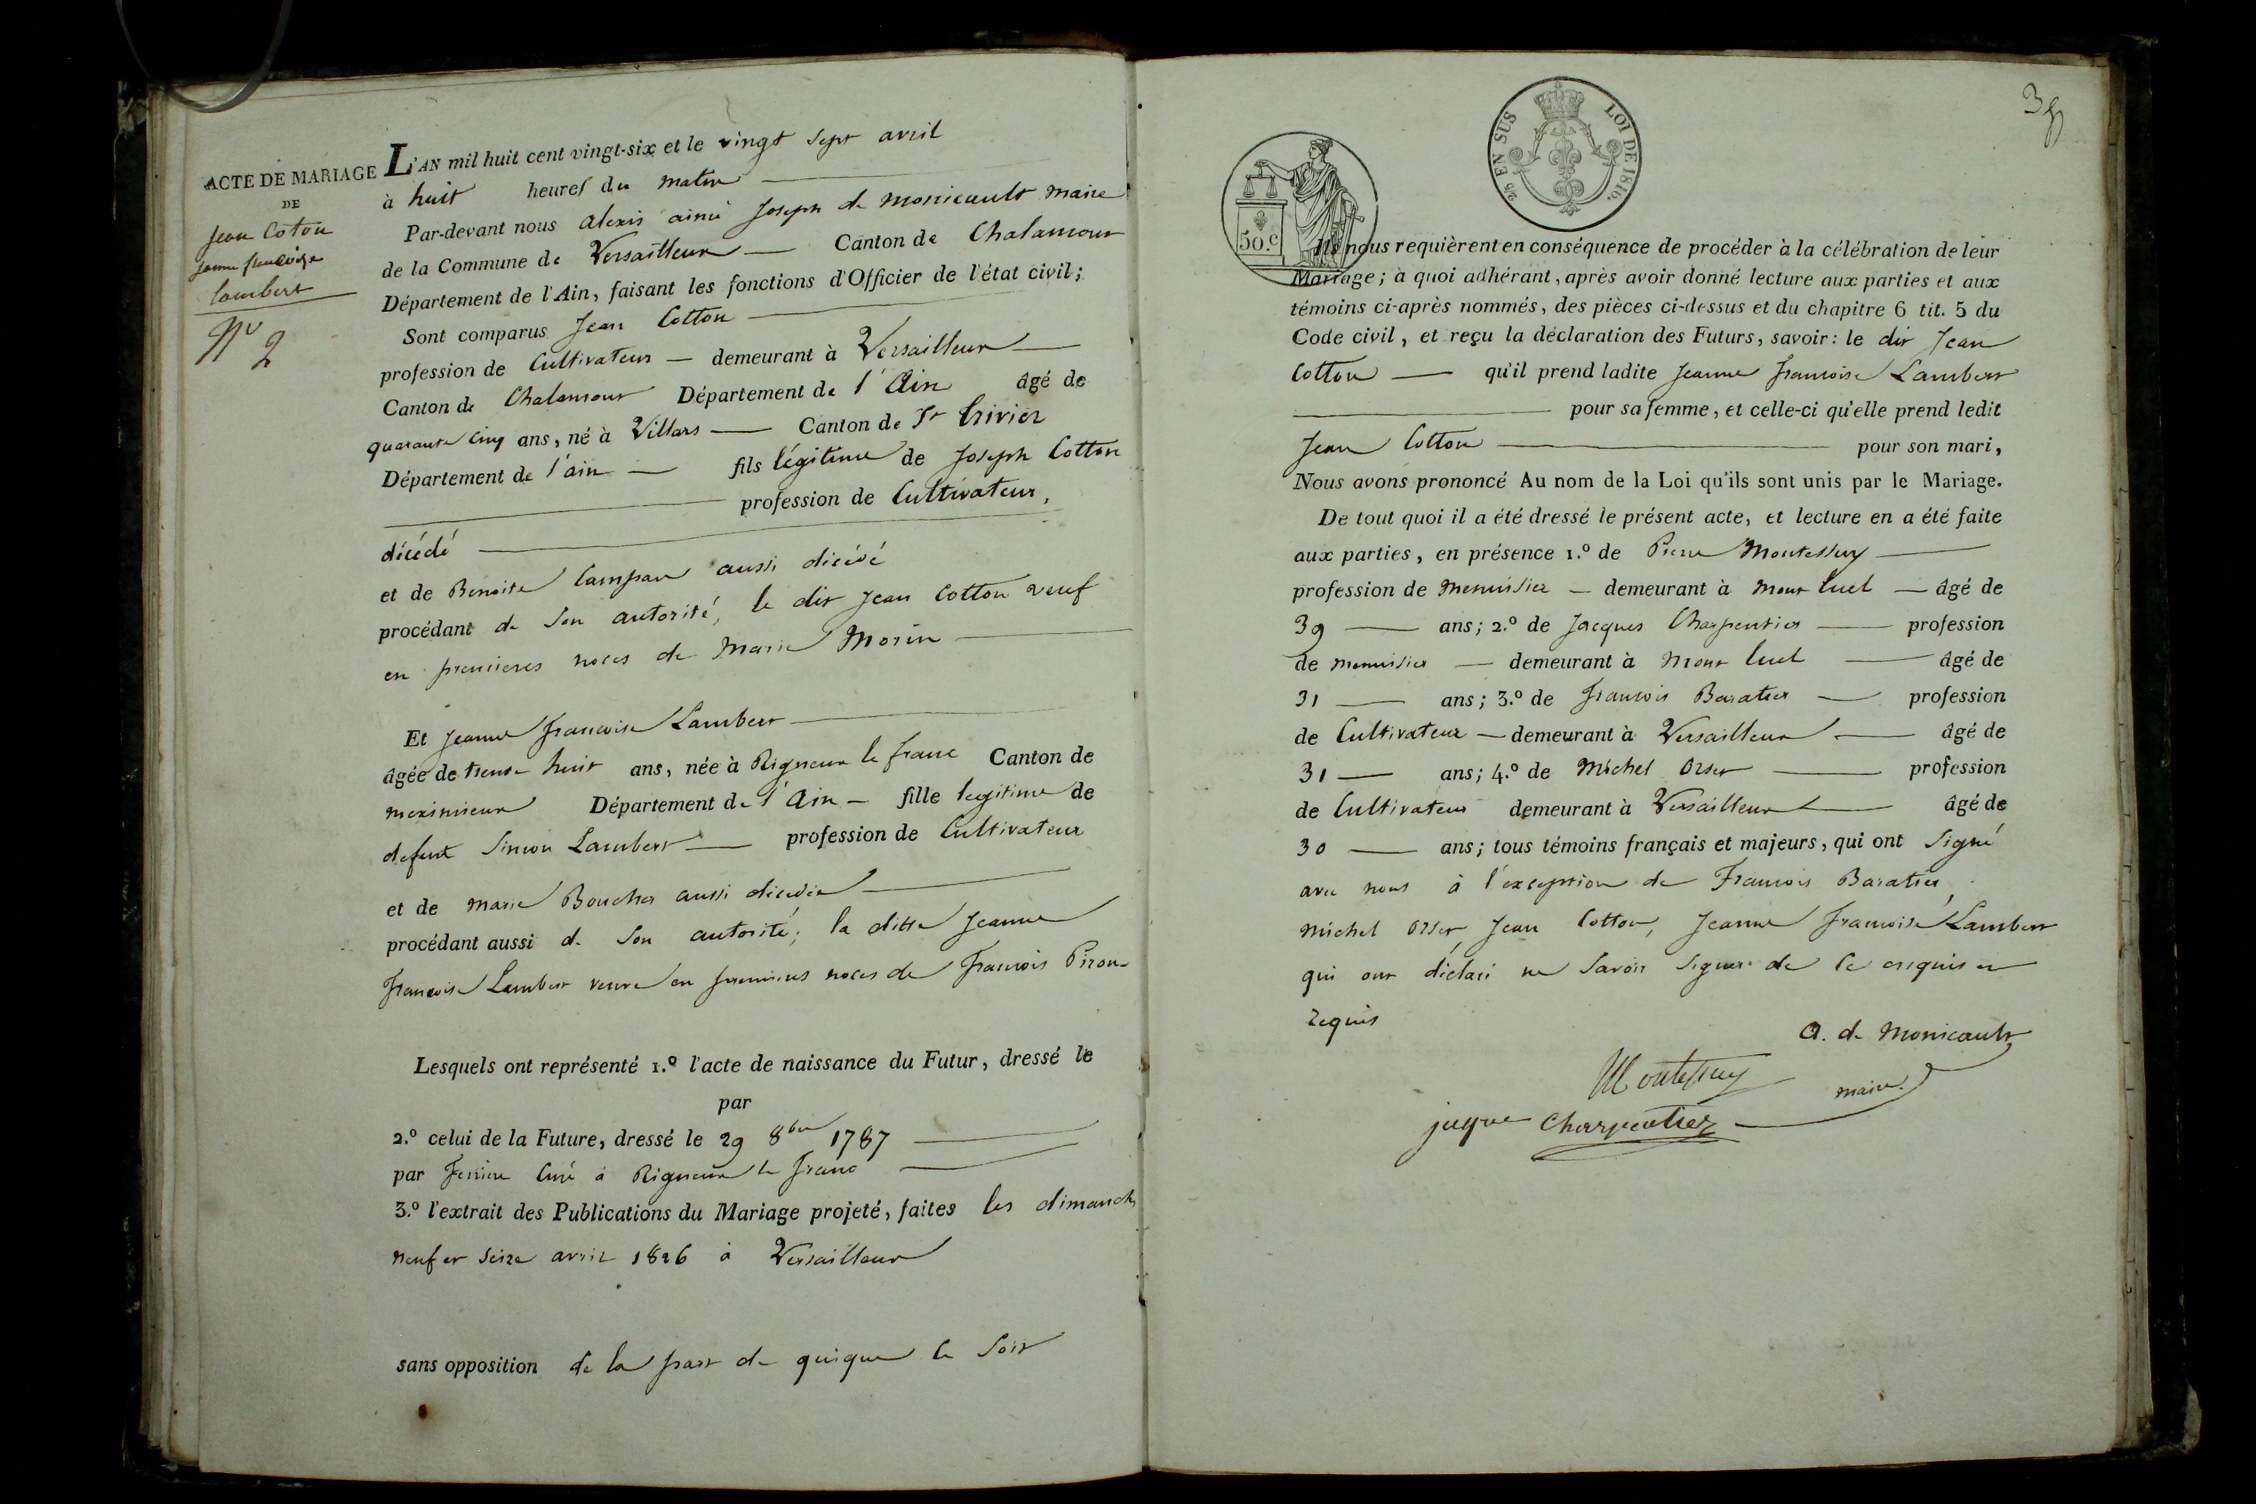 ACTE DE MARIAGE
DE
Jean Coton
Jeanne francoise
lambert
N° 2
L'AN mil huit cent vingt-six et le vingt sept avril
à huit heures du matin
Par-devant nous alexis aimé Joseph de monicault maire
de la Commune de Versailleux Canton de Chalamont
Département de l'Ain, faisant les fonctions d'Officier de l'état civil;
Sont comparus Jean Cotton
profession de Cultivateur demeurant à Versailleux
Canton de Chalamont Département de l'Ain âgé de
quarante cinq ans, né à Villars Canton de St trivier
Département de l'ain fils légitime de Joseph Cotton
profession de Cultivateur,
décédé
et de Benoite Campan aussi décédé
procédant de son autorité, le dit Jean Cotton veuf
en premieres noces de Marie Morin
Et Jeanne francoise Lambert
âgée de trente huit ans, née à Rigneux le franc Canton de
meximieux Département de l'Ain fille legitime de
defunt Simon Lambert profession de Cultivateur
et de marie Boucher aussi décédée
procédant aussi de son autorité; la ditte Jeanne
francoise Lambert veuve en premieres noces de francois Piron
Lesquels ont représenté 1.º l'acte de naissance du Futur, dressé le
par
2.º celui de la Future, dressé le 29 8bre 1787
par Curé à Rigneux le franc
3.º l'extrait des Publications du Mariage projeté, faites les dimanches
neuf et seize avril 1826 à Versailleux
sans opposition de la part de quique ce soit
39
25 EN SUS LOI DE 1816.
50.c
Ils nous requièrent en conséquence de procéder à la célébration de leur
Mariage; à quoi adhérant, après avoir donné lecture aux parties et aux
témoins ci-après nommés, des pièces ci-dessus et du chapitre 6 tit. 5 du
Code civil, et reçu la déclaration des Futurs, savoir: le dit Jean
Cotton qu'il prend ladite Jeanne francoise Lambert
pour sa femme, et celle-ci qu'elle prend ledit
Jean Cotton pour son mari,
Nous avons prononcé Au nom de la Loi qu'ils sont unis par le Mariage.
De tout quoi il a été dressé le présent acte, et lecture en a été faite
aux parties, en présence 1.º de Pierre Montessuy
profession de menuisier demeurant à mont luel âgé de
39 ans; 2.º de Jacques Charpentier profession
de menuisier demeurant à Mont luel âgé de
31 ans; 3.º de francois Baratier profession
de Cultivateur demeurant à Versailleux âgé de
31 ans; 4.º de Michel Orset profession
de Cultivateur demeurant à Versailleux âgé de
30 ans; tous témoins français et majeurs, qui ont signé
avec nous à l'exception de Francois Baratier,
Michel Orset, Jean Cotton, Jeanne francoise Lambert
qui ont déclaré ne savoir signer de ce enquis et
requis
A. de Monicault
Montessuy maire.
jaque Charpentier